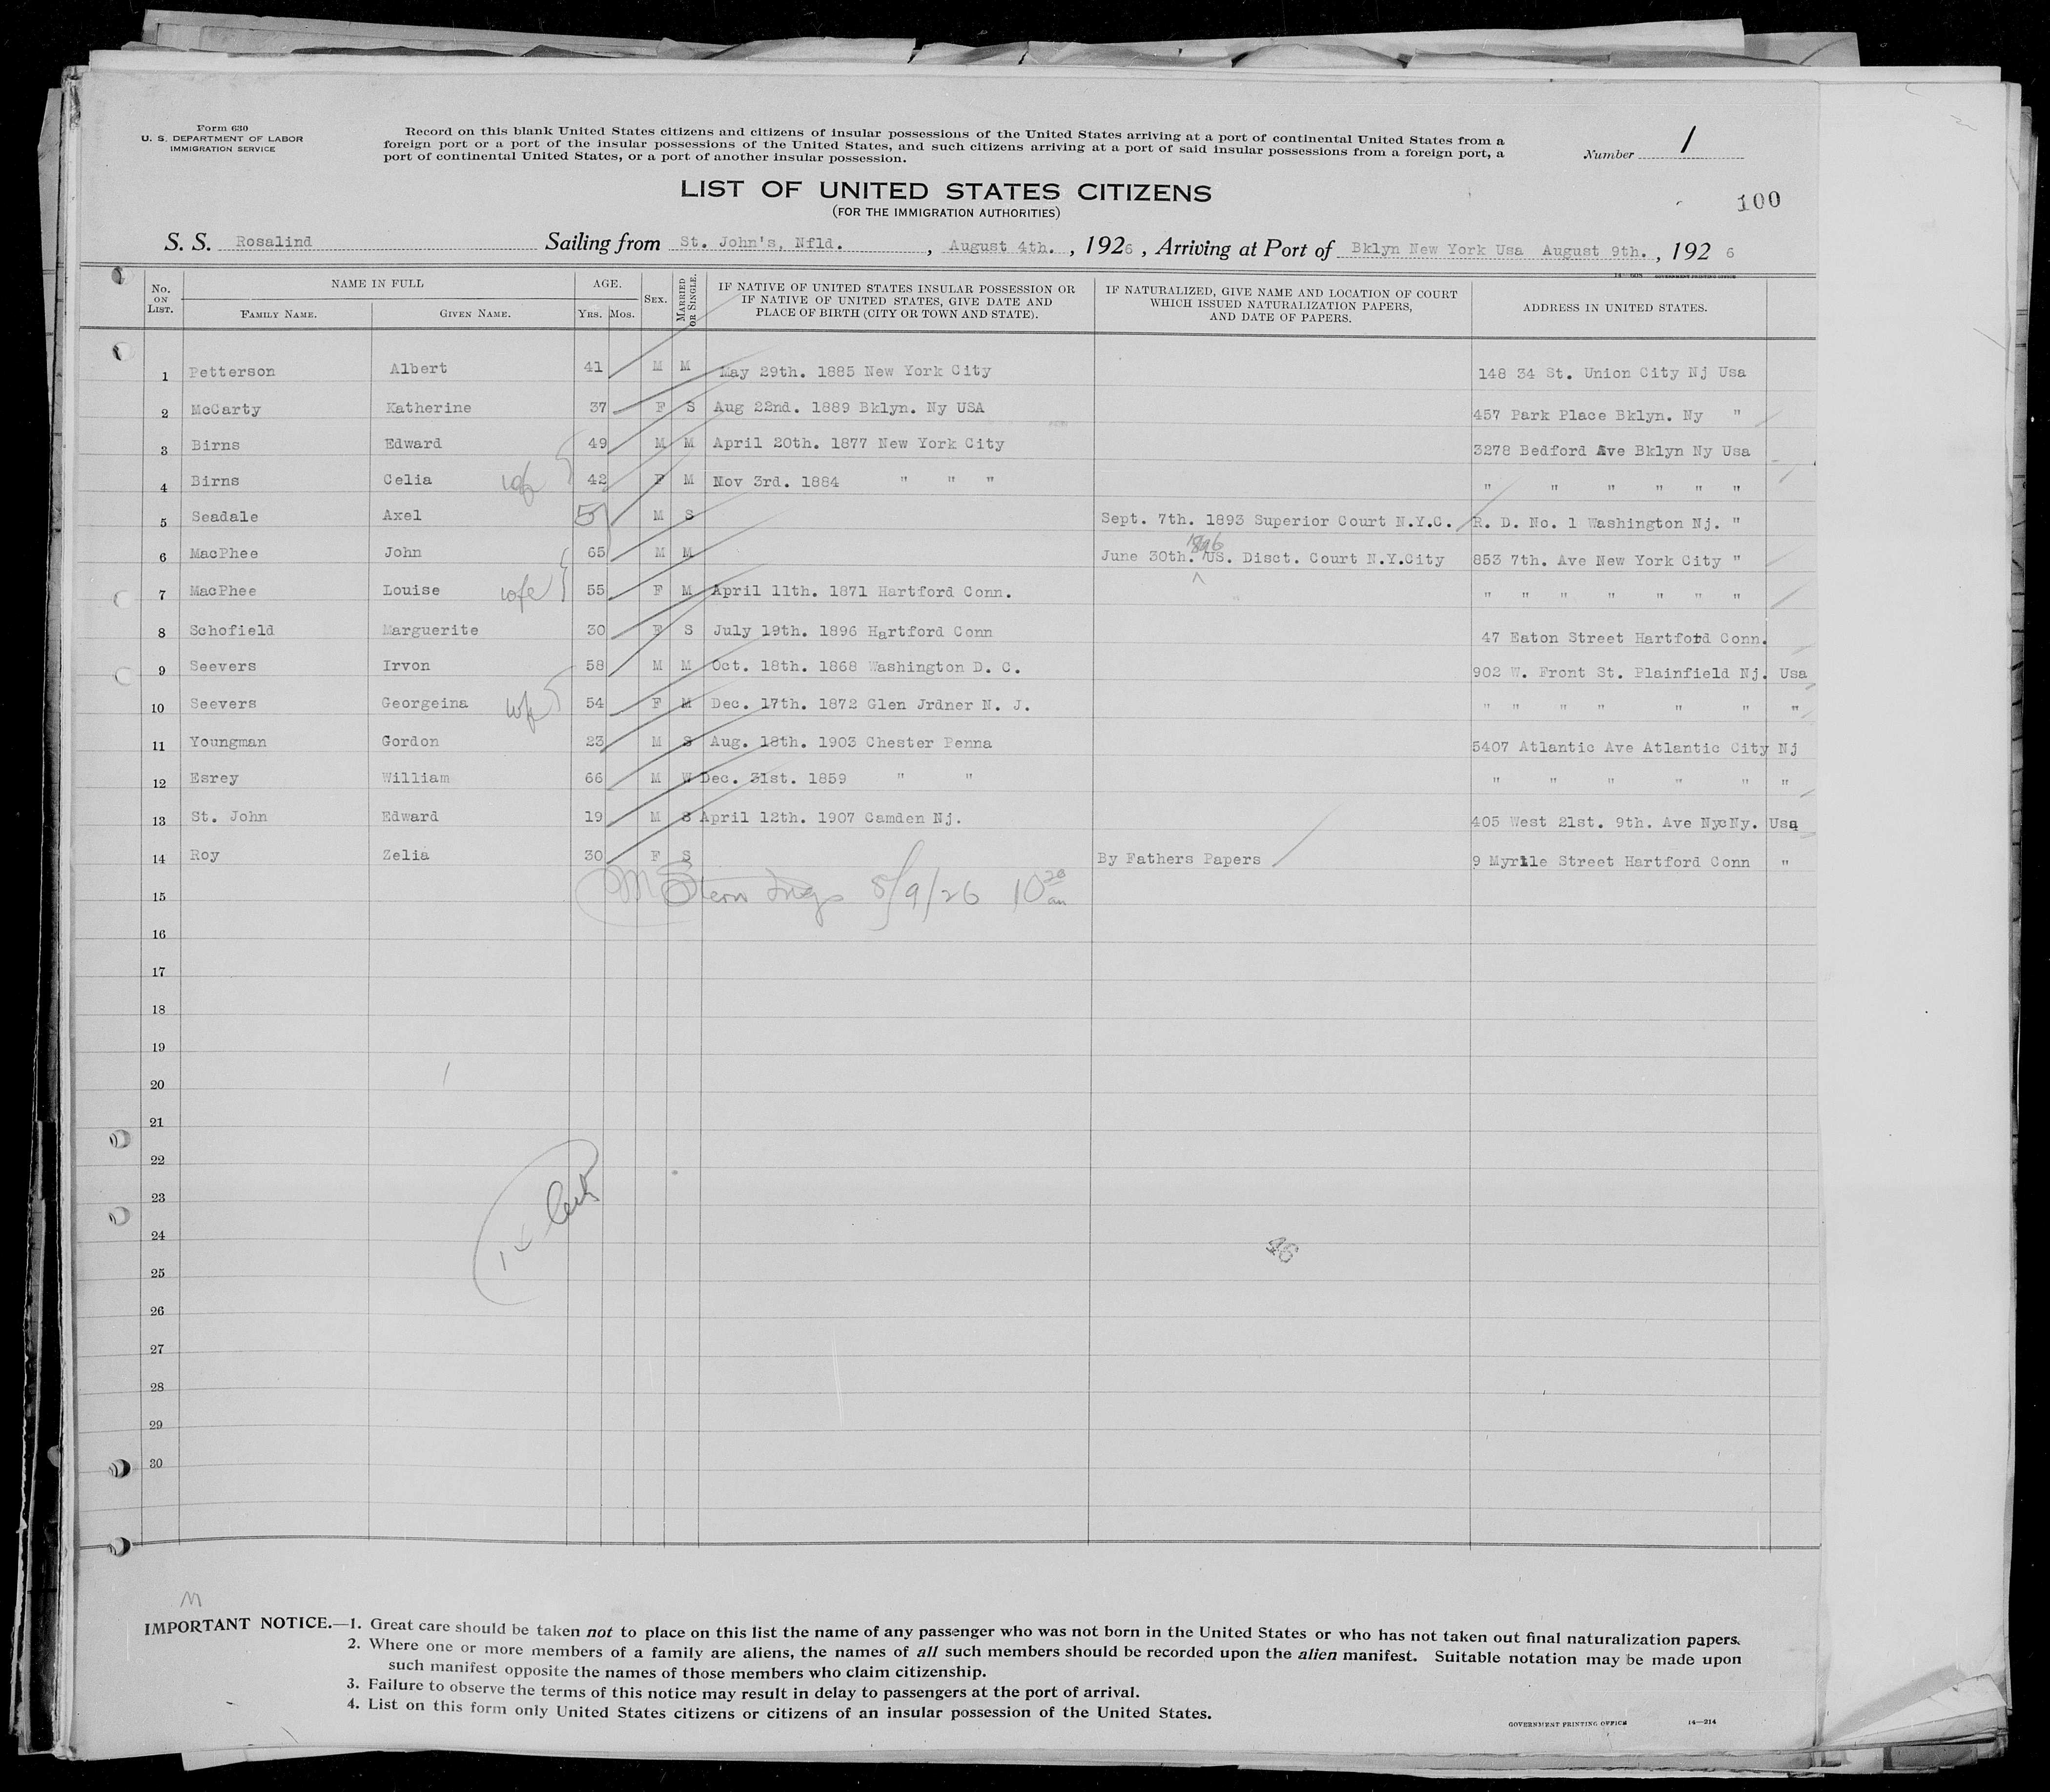 Form 630
U. S. DEPARTMENT OF LABOR
IMMIGRATION SERVICE
Record on this blank United States citizens and citizens of insular possessions of the United States arriving at a port of continental United States from a
foreign port or a port of the insular possessions of the United States, and such citizens arriving at a port of said insular possessions from a foreign port, a
port of continental United States, or a port of another insular possession.
Number 1
LIST OF UNITED STATES CITIZENS
(FOR THE IMMIGRATION AUTHORITIES)
100
S. S. Rosalind Sailing from St. John's, Nfld. , August 4th. , 1926 , Arriving at Port of Bklyn New York Usa August 9th. , 192 6
No. ON LIST. NAME IN FULL AGE. SEX. MARRIED OR SINGLE. IF NATIVE OF UNITED STATES INSULAR POSSESSION OR IF NATIVE OF UNITED STATES, GIVE DATE AND PLACE OF BIRTH (CITY OR TOWN AND STATE). IF NATURALIZED, GIVE NAME AND LOCATION OF COURT WHICH ISSUED NATURALIZATION PAPERS, AND DATE OF PAPERS. ADDRESS IN UNITED STATES.
FAMILY NAME. GIVEN NAME. YRS. MOS.
1 Petterson Albert 41 M M May 29th. 1885 New York City 148 34 St. Union City Nj Usa
2 McCarty Katherine 37 F S Aug 22nd. 1889 Bklyn. Ny USA 457 Park Place Bklyn. Ny "
3 Birns Edward 49 M M April 20th. 1877 New York City 3278 Bedford Ave Bklyn Ny Usa
4 Birns Celia wfe 42 F M Nov 3rd. 1884 " " " " " " " " "
5 Seadale Axel M S Sept. 7th. 1893 Superior Court N.Y.C. R. D. No. 1 Washington Nj. "
6 MacPhee John 65 M M June 30th. 1896 US. Disct. Court N.Y.City 853 7th. Ave New York City "
7 MacPhee Louise wfe 55 F M April 11th. 1871 Hartford Conn. " " " " " " "
8 Schofield Marguerite 30 F S July 19th. 1896 Hartford Conn 47 Eaton Street Hartford Conn.
9 Seevers Irvon 58 M M Oct. 18th. 1868 Washington D. C. 902 W. Front St. Plainfield Nj. Usa
10 Seevers Georgeina wfe 54 F M Dec. 17th. 1872 Glen Jrdner N. J. " " " " " " "
11 Youngman Gordon 23 M S Aug. 18th. 1903 Chester Penna 5407 Atlantic Ave Atlantic City Nj
12 Esrey William 66 M W Dec. 31st. 1859 " " " " " " " "
13 St. John Edward 19 M S April 12th. 1907 Camden Nj. 405 West 21st. 9th. Ave Nyc Ny. Usa
14 Roy Zelia 30 F S By Fathers Papers 9 Myrtle Street Hartford Conn "
15 8/9/26 10 20 am
16
17
18
19
20
21
22
23
24
25
26
27
28
29
30
46
IMPORTANT NOTICE.—1. Great care should be taken not to place on this list the name of any passenger who was not born in the United States or who has not taken out final naturalization papers.
2. Where one or more members of a family are aliens, the names of all such members should be recorded upon the alien manifest. Suitable notation may be made upon
such manifest opposite the names of those members who claim citizenship.
3. Failure to observe the terms of this notice may result in delay to passengers at the port of arrival.
4. List on this form only United States citizens or citizens of an insular possession of the United States.
GOVERNMENT PRINTING OFFICE 14—214